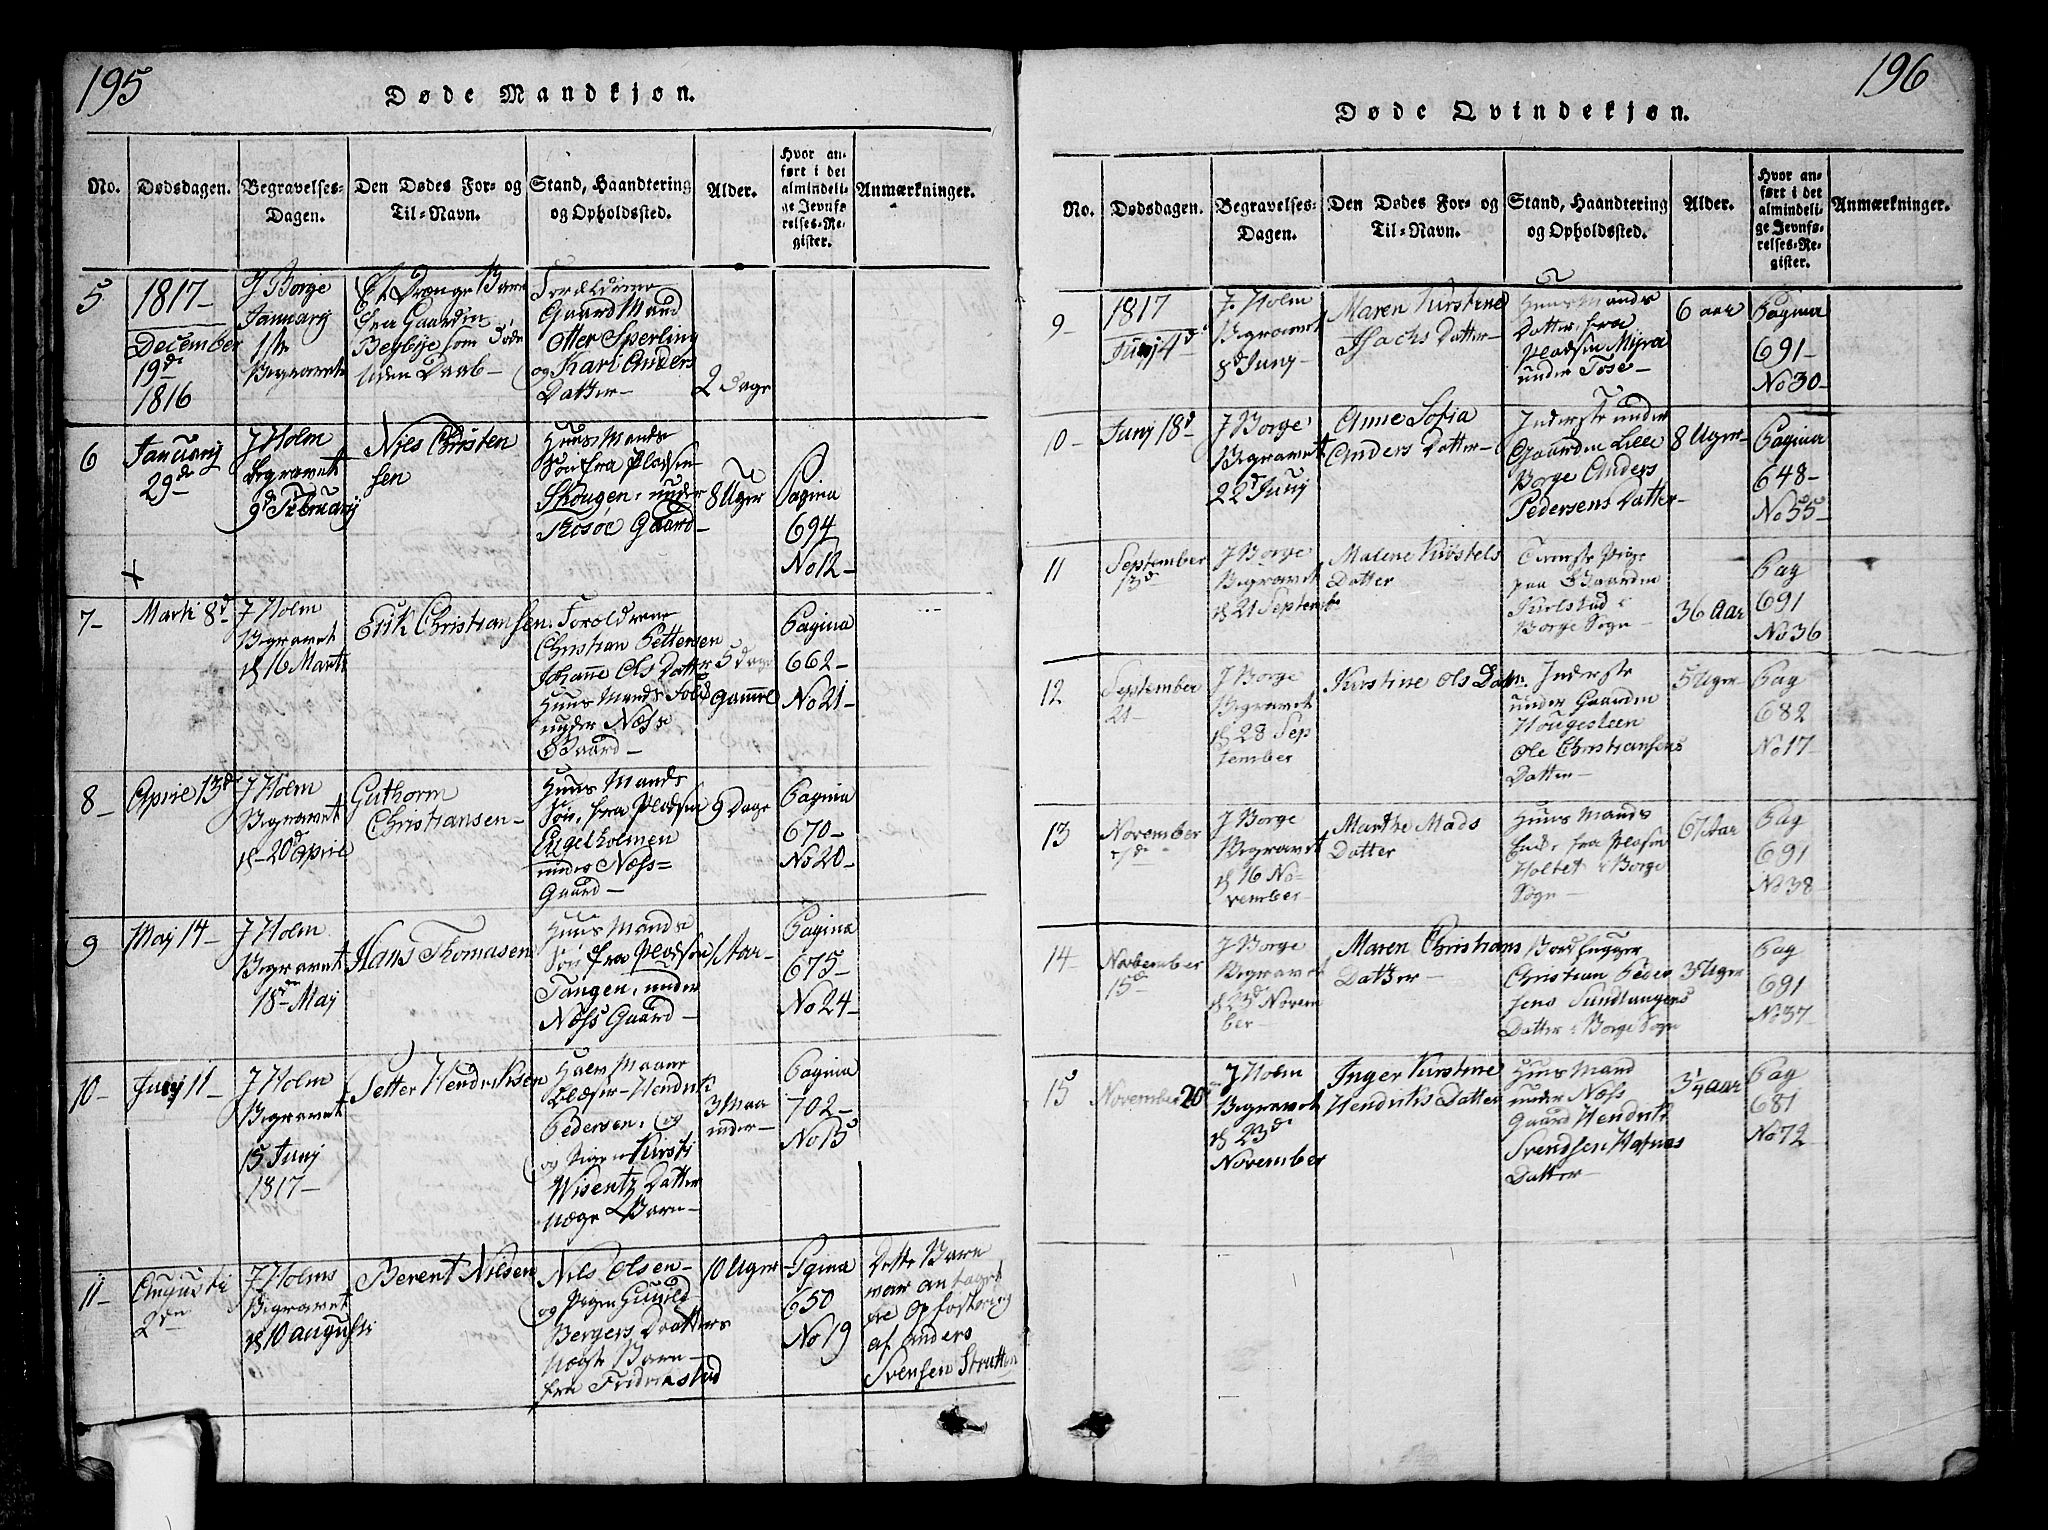 195
Døde Mandkjøn.
No.
Dødsdagen.
Begravelses-
Dagen.
Den Dødes For- og
Til-Navn.
Stand, Haandtering
og Opholdssted.
Alder.
Hvor an-
ført i det
almindeli-
ge Jevnfø-
relses-Re-
gister.
Anmærkninger.
5
1817-
December
19d
1816
J Borge
Januarij
1ste
Begravet
Et Drænge Barn
fra Gaarden
Begbije som Døde
Uden Daab-
Foreldrene
Gaard Mand
Otter Sperling
og Kari Anders
Datter-
2 Dage
6
Januarij
29d
J Holm
Begravet
9d Februarij
Nils Christen
sen
Huus Mands
Søn fra Pladsen
Skougen, under
Trosøe Gaard-
8 Uger
Pagina
694
No 12-
7-
Marti 8d
J Holm
Begravet
d 16 Marti
Erik Christiansen.
Foreldrene
Christian Pettersen
Johanne Ols Datter
Huus Mands Folk
under Næss
Gaard-
5 dage
Gammel
Pagina
662-
No 21-
8-
Aprie 13d
J Holm
Begravet
d-20d Aprie
Guthorm
Christiansen-
Huus Mands
Søn, fra Pladsen
Engelholmen
under Næss=
Gaard-
9 Dage
Pagina
670-
No 20-
9
Maj 14-
J Holm
Begravet
18de Maj
Hans Thomasen
Huus Mands
Søn fra Pladsen
Tangen, under
Næss Gaard-
1 Aar-
Pagina
675-
No 24-
10-
Junj 11-
J Holm
Begravet
15 Junj
1817-
Petter Hendriksen
Blæser-Hendrik
Pedersen, og
og Pigen Kirsti
Wisentz Datter
uægte Barn-
3 Maa
neder-
Pagina
702-
No 15
11-
Augusti
2den
J Holms
Begravet
d 10 augusti
Berent Nilsen
Nils Olsen-
og Pigen Gunild
Bergers Datters
uægte Barn-
fra Fridrikstad
10 Uger
Pgina
650
No 19
Dette Barn
var antaget
til Opfostring
af Anders
Svensen Strutten
196
Døde Qvindekjøn.
No.
Dødsdagen.
Begravelses-
Dagen.
Den Dødes For- og
Til-Navn.
Stand, Haandtering
og Opholdssted.
Alder.
Hvor an-
ført i det
almindeli-
ge Jevnfø-
relses-Re-
gister.
Anmærkninger.
9-
1817
Junj 4d
J Holm
Begravet
8d Junj-
Maren Kirstine
Isachs Datter-
Huus Mands
Datter, fra
Pladsen Myra
under Tose-
6 aar
Pagina
691-
No 30-
10-
Junj 18d
J Borge
Begravet
22d Junj
Anne Sofia
Anders Datter-
Inderste under
Gaarden Lille
Borge Anders
Pedersens Datter-
8 Uger-
Pagina
648-
No 55-
11
September
13d
J Borge
Begravet
d 21 Septemb
Malene Kirstels
Datter
Tieneste Pige
paa Gaarden
Karlstad i
Borge Sogn-
36 Aar
Pag
691
No 36
12
September
21-
J Borge
Begravet
d 28 Sep
tember
Kirstine Ols Datter.
Inderste
under Gaarden
Hougesteen
Ole Christiansens
Datter-
5 Uger
Pag
682
No 17-
13
November
7de
J Borge
Begravet
d 16 No-
vember-
Marthe Mads
Datter
Huus Mands
Enke fra Pladsen
Holtet i Borge
Sogn-
67 Aar
Pag
691
No 38-
14-
November
15d
J Borge
Begravet
d 23d Novem
ber-
Maren Christians
Datter-
Bordhugger
Christian Peder
sens Sundlangens
Datter i Borge Sogn
3 Uger
Pag
691
No 37-
15
November 20d
J Holm
Begravet
d 23de
November
Inger Kirstine
Hendriks Datter
Huus Mand
under Næss
Gaard Hendrik
Svendsen Hafnas
Datter-
3/4 aar
Pag
681
No 72-